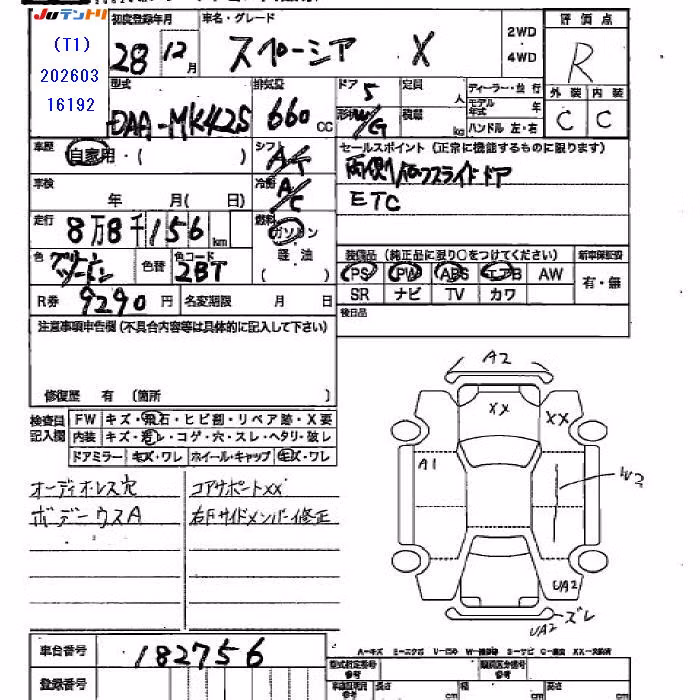 Juテントリ
(T1)
202603
16192
初度登録年月
28 12月
車名・グレード
スペーシア X
2WD
4WD
評価点
R
型式
DAA-MK42S
排気量
660 cc
ドア 5
形状 W/G
定員 人
積載 kg
ディーラー・並行
モデル年式 年
ハンドル 左・右
外装 内装
C C
車歴
自家用・( )
シフト AT
セールスポイント (正常に機能するものに限ります)
両側パワスライドドア
ETC
車検
年 月( 日)
冷房 A/C
走行
8万8千156 km
燃料
ガソリン
軽油
( )
色
色替
色コード
ZBT
装備品 (純正品に限り○をつけてください)
新車保証書
PS PW ABS エアB AW
SR ナビ TV カワ
有・無
R券 9290円
名変期限 月 日
後日品
注意事項申告欄(不具合内容等は具体的に記入して下さい)
修復歴 有 〔箇所 〕
検査員
記入欄
FW キズ・飛石・ヒビ割・リペア跡・X要
内装 キズ・汚レ・コゲ・穴・スレ・ヘタリ・破レ
ドアミラー キズ・ワレ ホイール・キャップ キズ・ワレ
オーディオレス穴
コアサポートXX
ボデーウスA
右Fサイドメンバー修正
A2
XX
XX
A1
W2
UA2
UA2
ズレ
車台番号 182756
登録番号
型式指定番号
参考
類別区分番号
参考
長さ cm
幅 cm
高さ cm